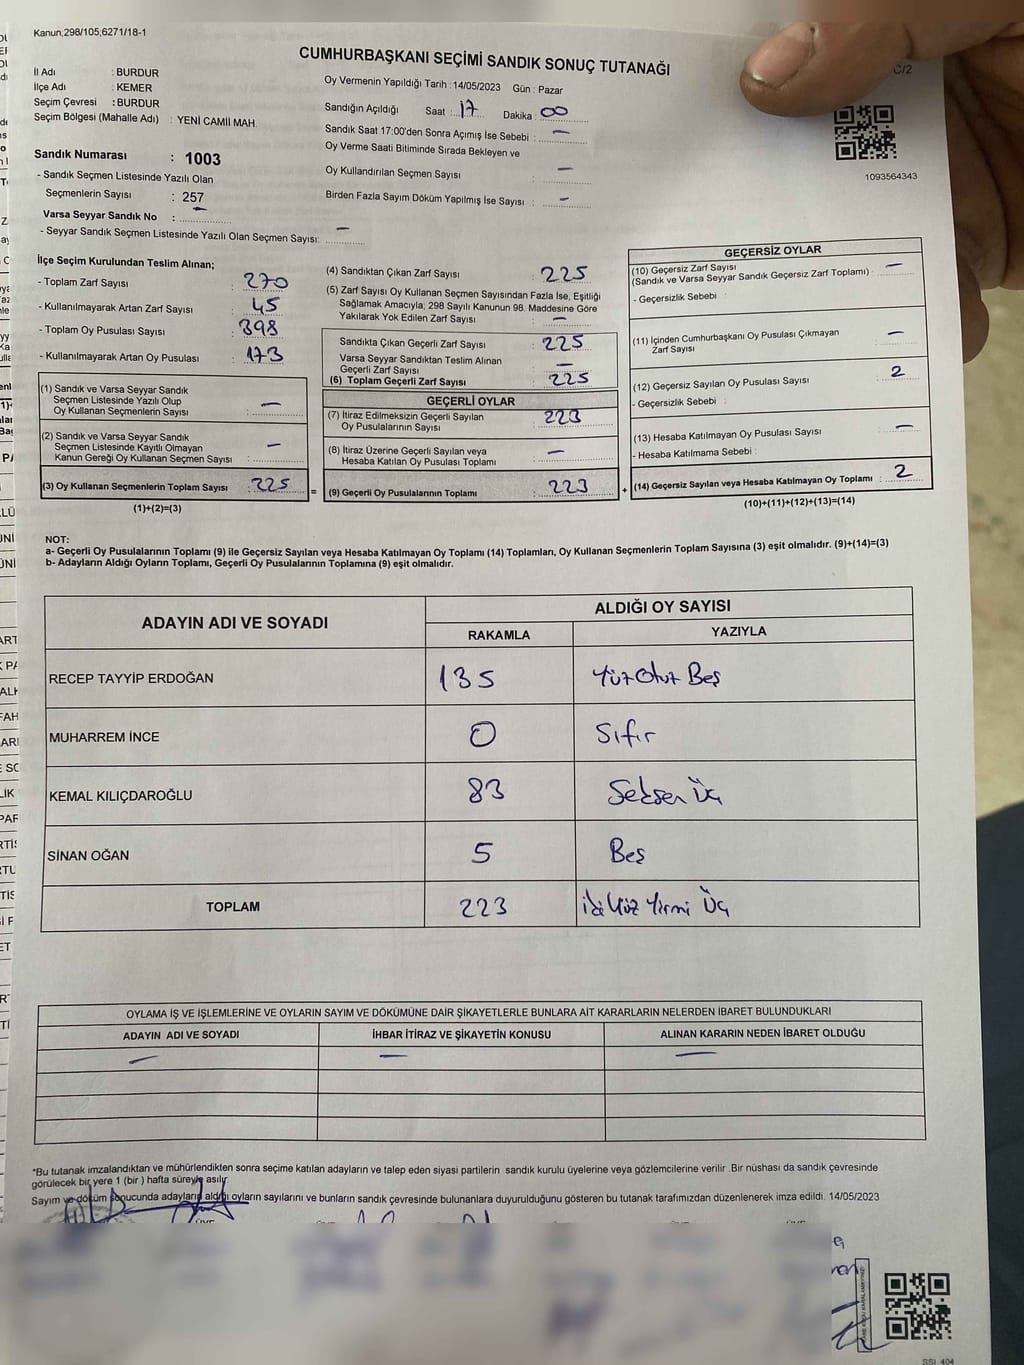 Kanun,298/105,6271/18-1
CUMHURBAŞKANI SEÇİMİ SANDIK SONUÇ TUTANAĞI
C/2
İl Adı : BURDUR
İlçe Adı : KEMER
Seçim Çevresi : BURDUR
Seçim Bölgesi (Mahalle Adı) : YENİ CAMİİ MAH.
Sandık Numarası : 1003
- Sandık Seçmen Listesinde Yazılı Olan
Seçmenlerin Sayısı : 257
Varsa Seyyar Sandık No : –
- Seyyar Sandık Seçmen Listesinde Yazılı Olan Seçmen Sayısı: –
Oy Vermenin Yapıldığı Tarih : 14/05/2023 Gün : Pazar
Sandığın Açıldığı Saat : 17 Dakika : 00
Sandık Saat 17:00'den Sonra Açımış İse Sebebi : –
Oy Verme Saati Bitiminde Sırada Bekleyen ve
Oy Kullandırılan Seçmen Sayısı : –
Birden Fazla Sayım Döküm Yapılmış İse Sayısı : –
1093564343
İlçe Seçim Kurulundan Teslim Alınan;
- Toplam Zarf Sayısı : 270
- Kullanılmayarak Artan Zarf Sayısı : 45
- Toplam Oy Pusulası Sayısı : 398
- Kullanılmayarak Artan Oy Pusulası : 173
(1) Sandık ve Varsa Seyyar Sandık
Seçmen Listesinde Yazılı Olup
Oy Kullanan Seçmenlerin Sayısı : –
(2) Sandık ve Varsa Seyyar Sandık
Seçmen Listesinde Kayıtlı Olmayan
Kanun Gereği Oy Kullanan Seçmen Sayısı : –
(3) Oy Kullanan Seçmenlerin Toplam Sayısı : 225
(1)+(2)=(3)
(4) Sandıktan Çıkan Zarf Sayısı : 225
(5) Zarf Sayısı Oy Kullanan Seçmen Sayısından Fazla İse, Eşitliği
Sağlamak Amacıyla; 298 Sayılı Kanunun 98. Maddesine Göre
Yakılarak Yok Edilen Zarf Sayısı : –
Sandıkta Çıkan Geçerli Zarf Sayısı : 225
Varsa Seyyar Sandıktan Teslim Alınan
Geçerli Zarf Sayısı : –
(6) Toplam Geçerli Zarf Sayısı : 225
GEÇERLİ OYLAR
(7) İtiraz Edilmeksizin Geçerli Sayılan
Oy Pusulalarının Sayısı : 223
(8) İtiraz Üzerine Geçerli Sayılan veya
Hesaba Katılan Oy Pusulası Toplamı : –
= (9) Geçerli Oy Pusulalarının Toplamı : 223
GEÇERSİZ OYLAR
(10) Geçersiz Zarf Sayısı
(Sandık ve Varsa Seyyar Sandık Geçersiz Zarf Toplamı) : –
- Geçersizlik Sebebi :
(11) İçinden Cumhurbaşkanı Oy Pusulası Çıkmayan
Zarf Sayısı : –
(12) Geçersiz Sayılan Oy Pusulası Sayısı : 2
- Geçersizlik Sebebi :
(13) Hesaba Katılmayan Oy Pusulası Sayısı : –
- Hesaba Katılmama Sebebi :
+ (14) Geçersiz Sayılan veya Hesaba Katılmayan Oy Toplamı : 2
(10)+(11)+(12)+(13)=(14)
NOT:
a- Geçerli Oy Pusulalarının Toplamı (9) ile Geçersiz Sayılan veya Hesaba Katılmayan Oy Toplamı (14) Toplamları, Oy Kullanan Seçmenlerin Toplam Sayısına (3) eşit olmalıdır. (9)+(14)=(3)
b- Adayların Aldığı Oyların Toplamı, Geçerli Oy Pusulalarının Toplamına (9) eşit olmalıdır.
ADAYIN ADI VE SOYADI ALDIĞI OY SAYISI
RAKAMLA YAZIYLA
RECEP TAYYİP ERDOĞAN 135 Yüz Otuz Beş
MUHARREM İNCE 0 Sıfır
KEMAL KILIÇDAROĞLU 83 Seksen Üç
SİNAN OĞAN 5 Beş
TOPLAM 223 İki Yüz Yirmi Üç
OYLAMA İŞ VE İŞLEMLERİNE VE OYLARIN SAYIM VE DÖKÜMÜNE DAİR ŞİKAYETLERLE BUNLARA AİT KARARLARIN NELERDEN İBARET BULUNDUKLARI
ADAYIN ADI VE SOYADI İHBAR İTİRAZ VE ŞİKAYETİN KONUSU ALINAN KARARIN NEDEN İBARET OLDUĞU
– – –
*Bu tutanak imzalandıktan ve mühürlendikten sonra seçime katılan adayların ve talep eden siyasi partilerin sandık kurulu üyelerine veya gözlemcilerine verilir .Bir nüshası da sandık çevresinde
görülecek bir yere 1 (bir ) hafta süreyle asılır.
Sayım ve döküm sonucunda adayların aldığı oyların sayılarını ve bunların sandık çevresinde bulunanlara duyurulduğunu gösteren bu tutanak tarafımızdan düzenlenerek imza edildi. 14/05/2023